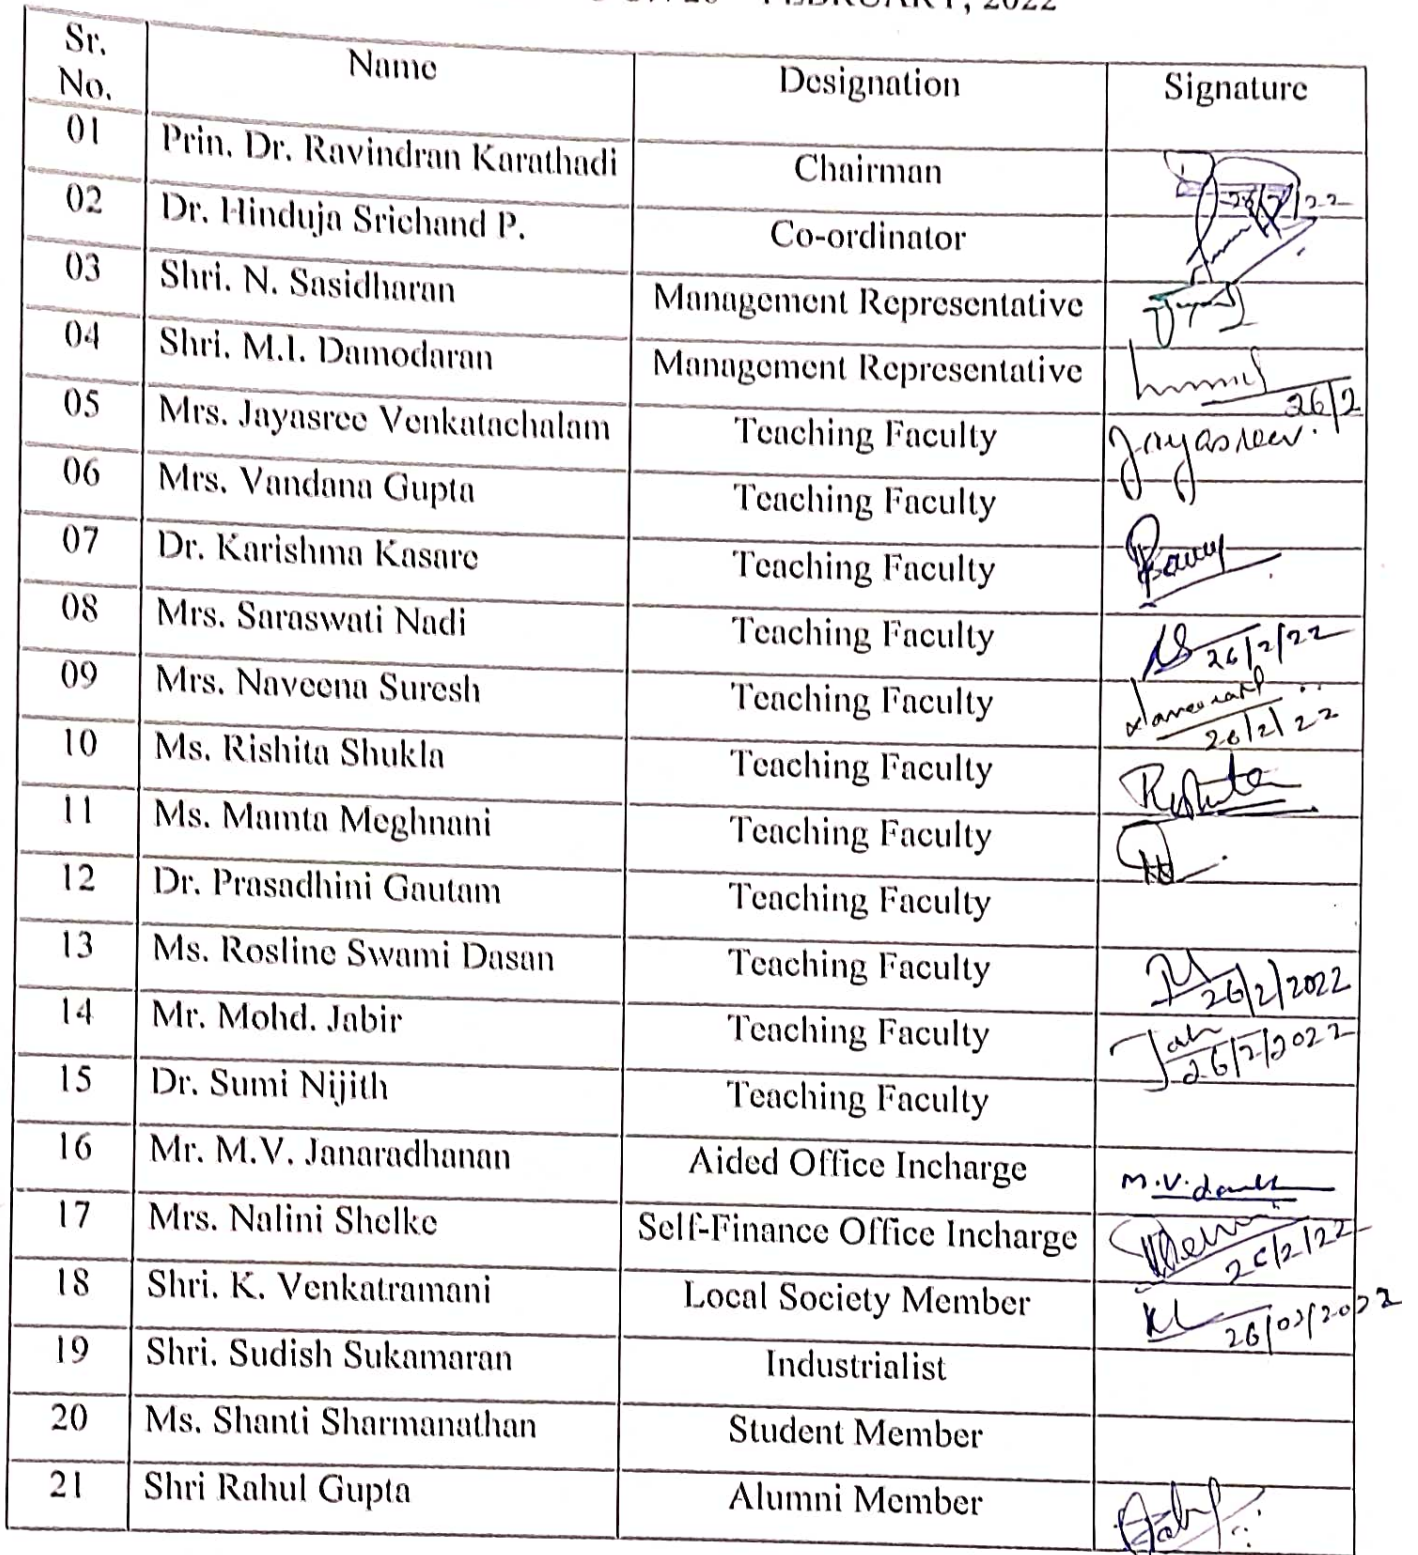 FEBRUARY, 2022
Sr. No. Name Designation Signature
01 Prin. Dr. Ravindran Karathadi Chairman
02 Dr. Hinduja Srichand P. Co-ordinator
03 Shri. N. Sasidharan Management Representative
04 Shri. M.I. Damodaran Management Representative 26/2
05 Mrs. Jayasree Venkatachalam Teaching Faculty Jayasree
06 Mrs. Vandana Gupta Teaching Faculty
07 Dr. Karishma Kasare Teaching Faculty
08 Mrs. Saraswati Nadi Teaching Faculty 26/2/22
09 Mrs. Naveena Suresh Teaching Faculty 26/2/22
10 Ms. Rishita Shukla Teaching Faculty Rishita
11 Ms. Mamta Meghnani Teaching Faculty
12 Dr. Prasadhini Gautam Teaching Faculty
13 Ms. Rosline Swami Dasan Teaching Faculty 26/2/2022
14 Mr. Mohd. Jabir Teaching Faculty 26/2/2022
15 Dr. Sumi Nijith Teaching Faculty
16 Mr. M.V. Janaradhanan Aided Office Incharge M.V.
17 Mrs. Nalini Shelke Self-Finance Office Incharge 26/2/22
18 Shri. K. Venkatramani Local Society Member 26/02/2022
19 Shri. Sudish Sukamaran Industrialist
20 Ms. Shanti Sharmanathan Student Member
21 Shri Rahul Gupta Alumni Member